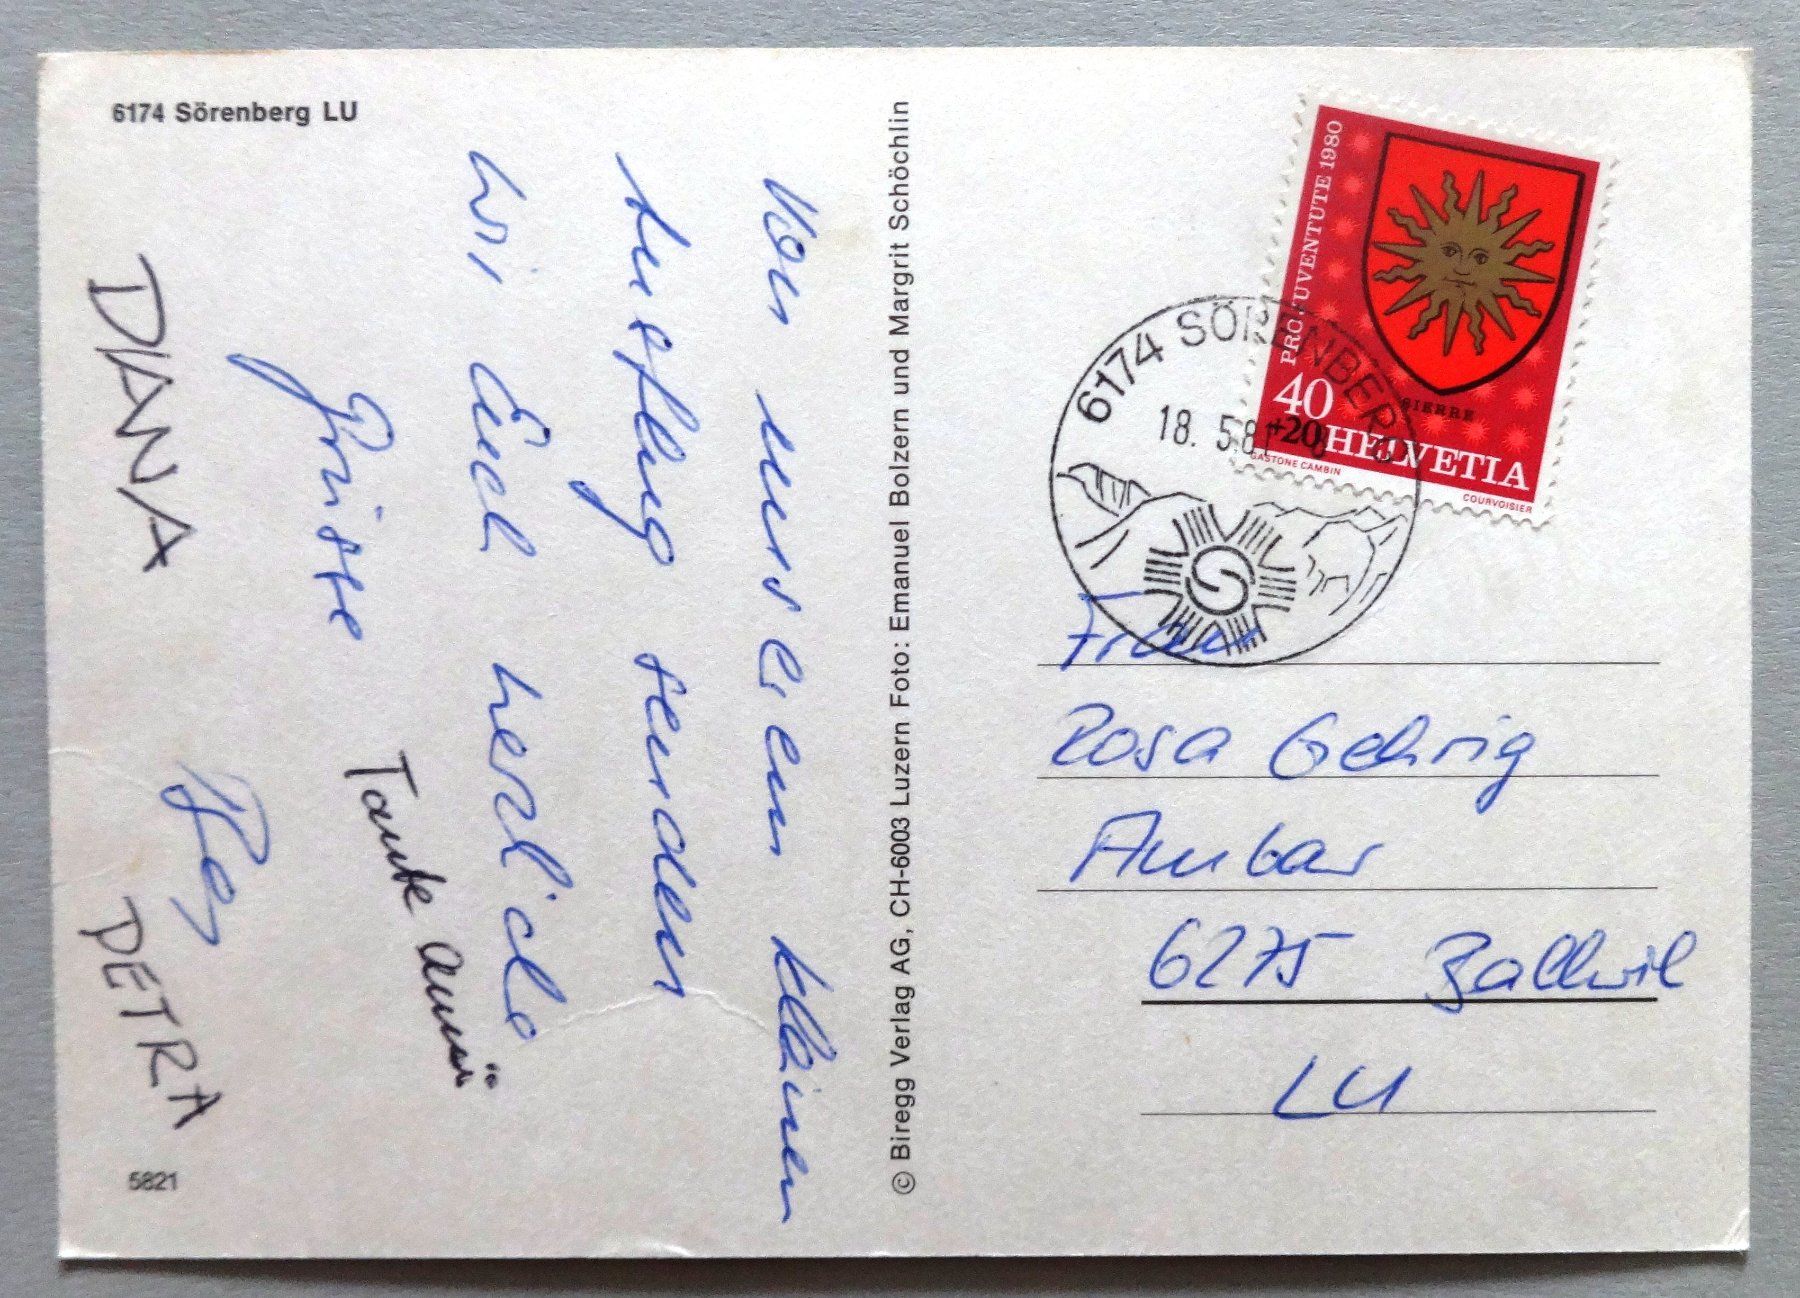 6174 Sörenberg LU
Von unserem kleinen
Ausflug senden
wir Euch herzliche
Grüsse
Tante Anni
DIANA
PETRA
5821
© Biregg Verlag AG, CH-6003 Luzern Foto: Emanuel Bolzern und Margrit Schöchlin
PRO JUVENTUTE 1980
SIERRE
40
+20 HELVETIA
GASTONE CAMBIN
COURVOISIER
6174 SÖRENBERG
18. 5.81
Frau
Rosa Gehrig
Ambar
6275 Ballwil
LU